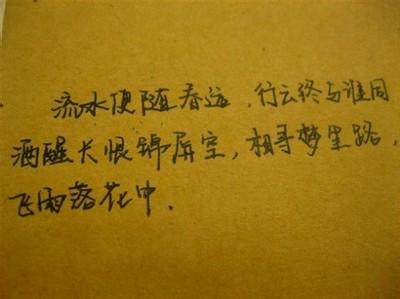 流水便随春远，行云终与谁同
酒醒长恨锦屏空，相寻梦里路，
飞雨落花中．